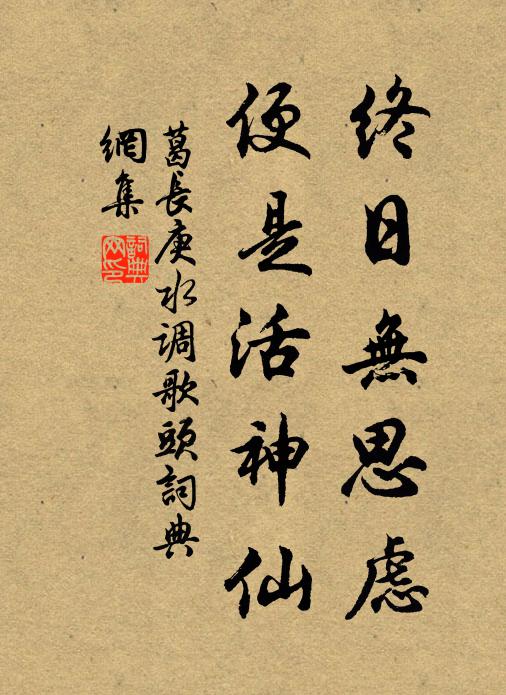 終日無思慮
便是活神仙
葛長庚水调歌頭詞典
網集
詞典網印